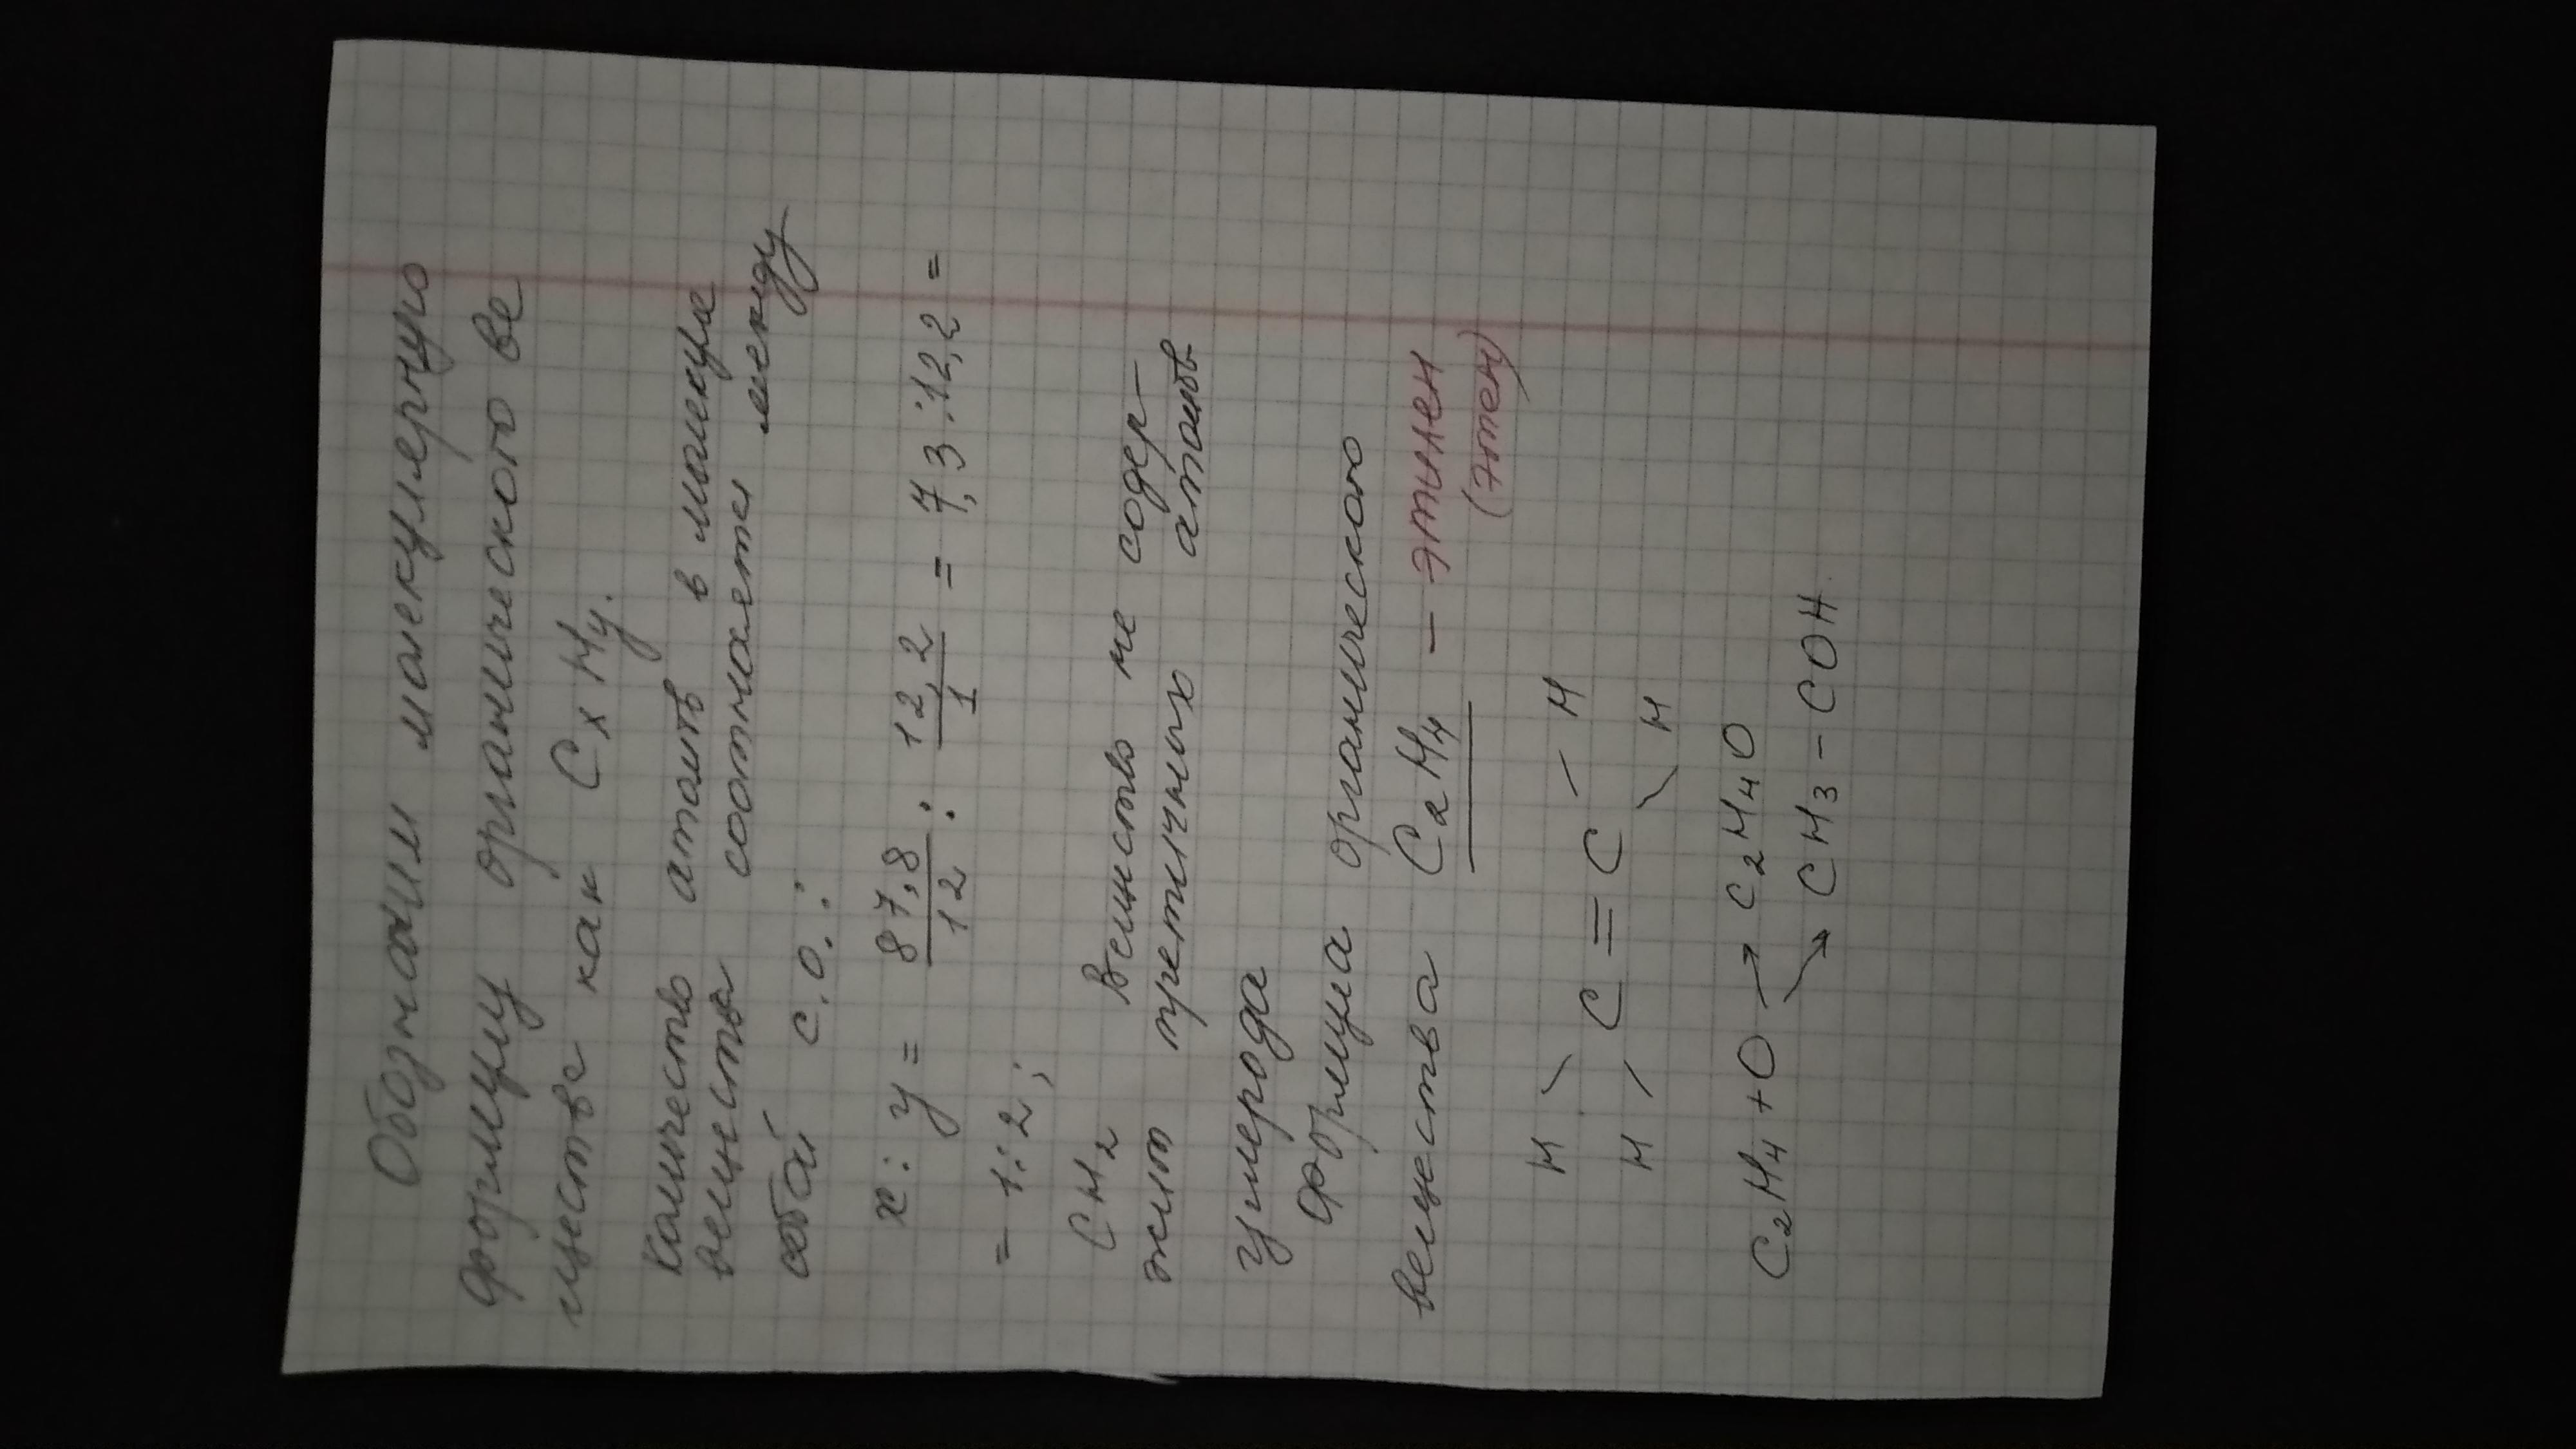 Обозначим молекулярную
формулу органического ве
щества как CxHy.
Количество атомов в молекуле
вещества соотносятся между
собой с.о.:
x : y = 87,8/12 : 12,2/1 = 7,3 : 12,2 =
= 1 : 2;
CH2 Вещество не содер-
жит третичного атомов
углерода
Формула органического
вещества C2H4 – этилен
(этен)
H \ / H
C = C
H / \ H
C2H4 + O → C2H4O
↘ CH3 – COH